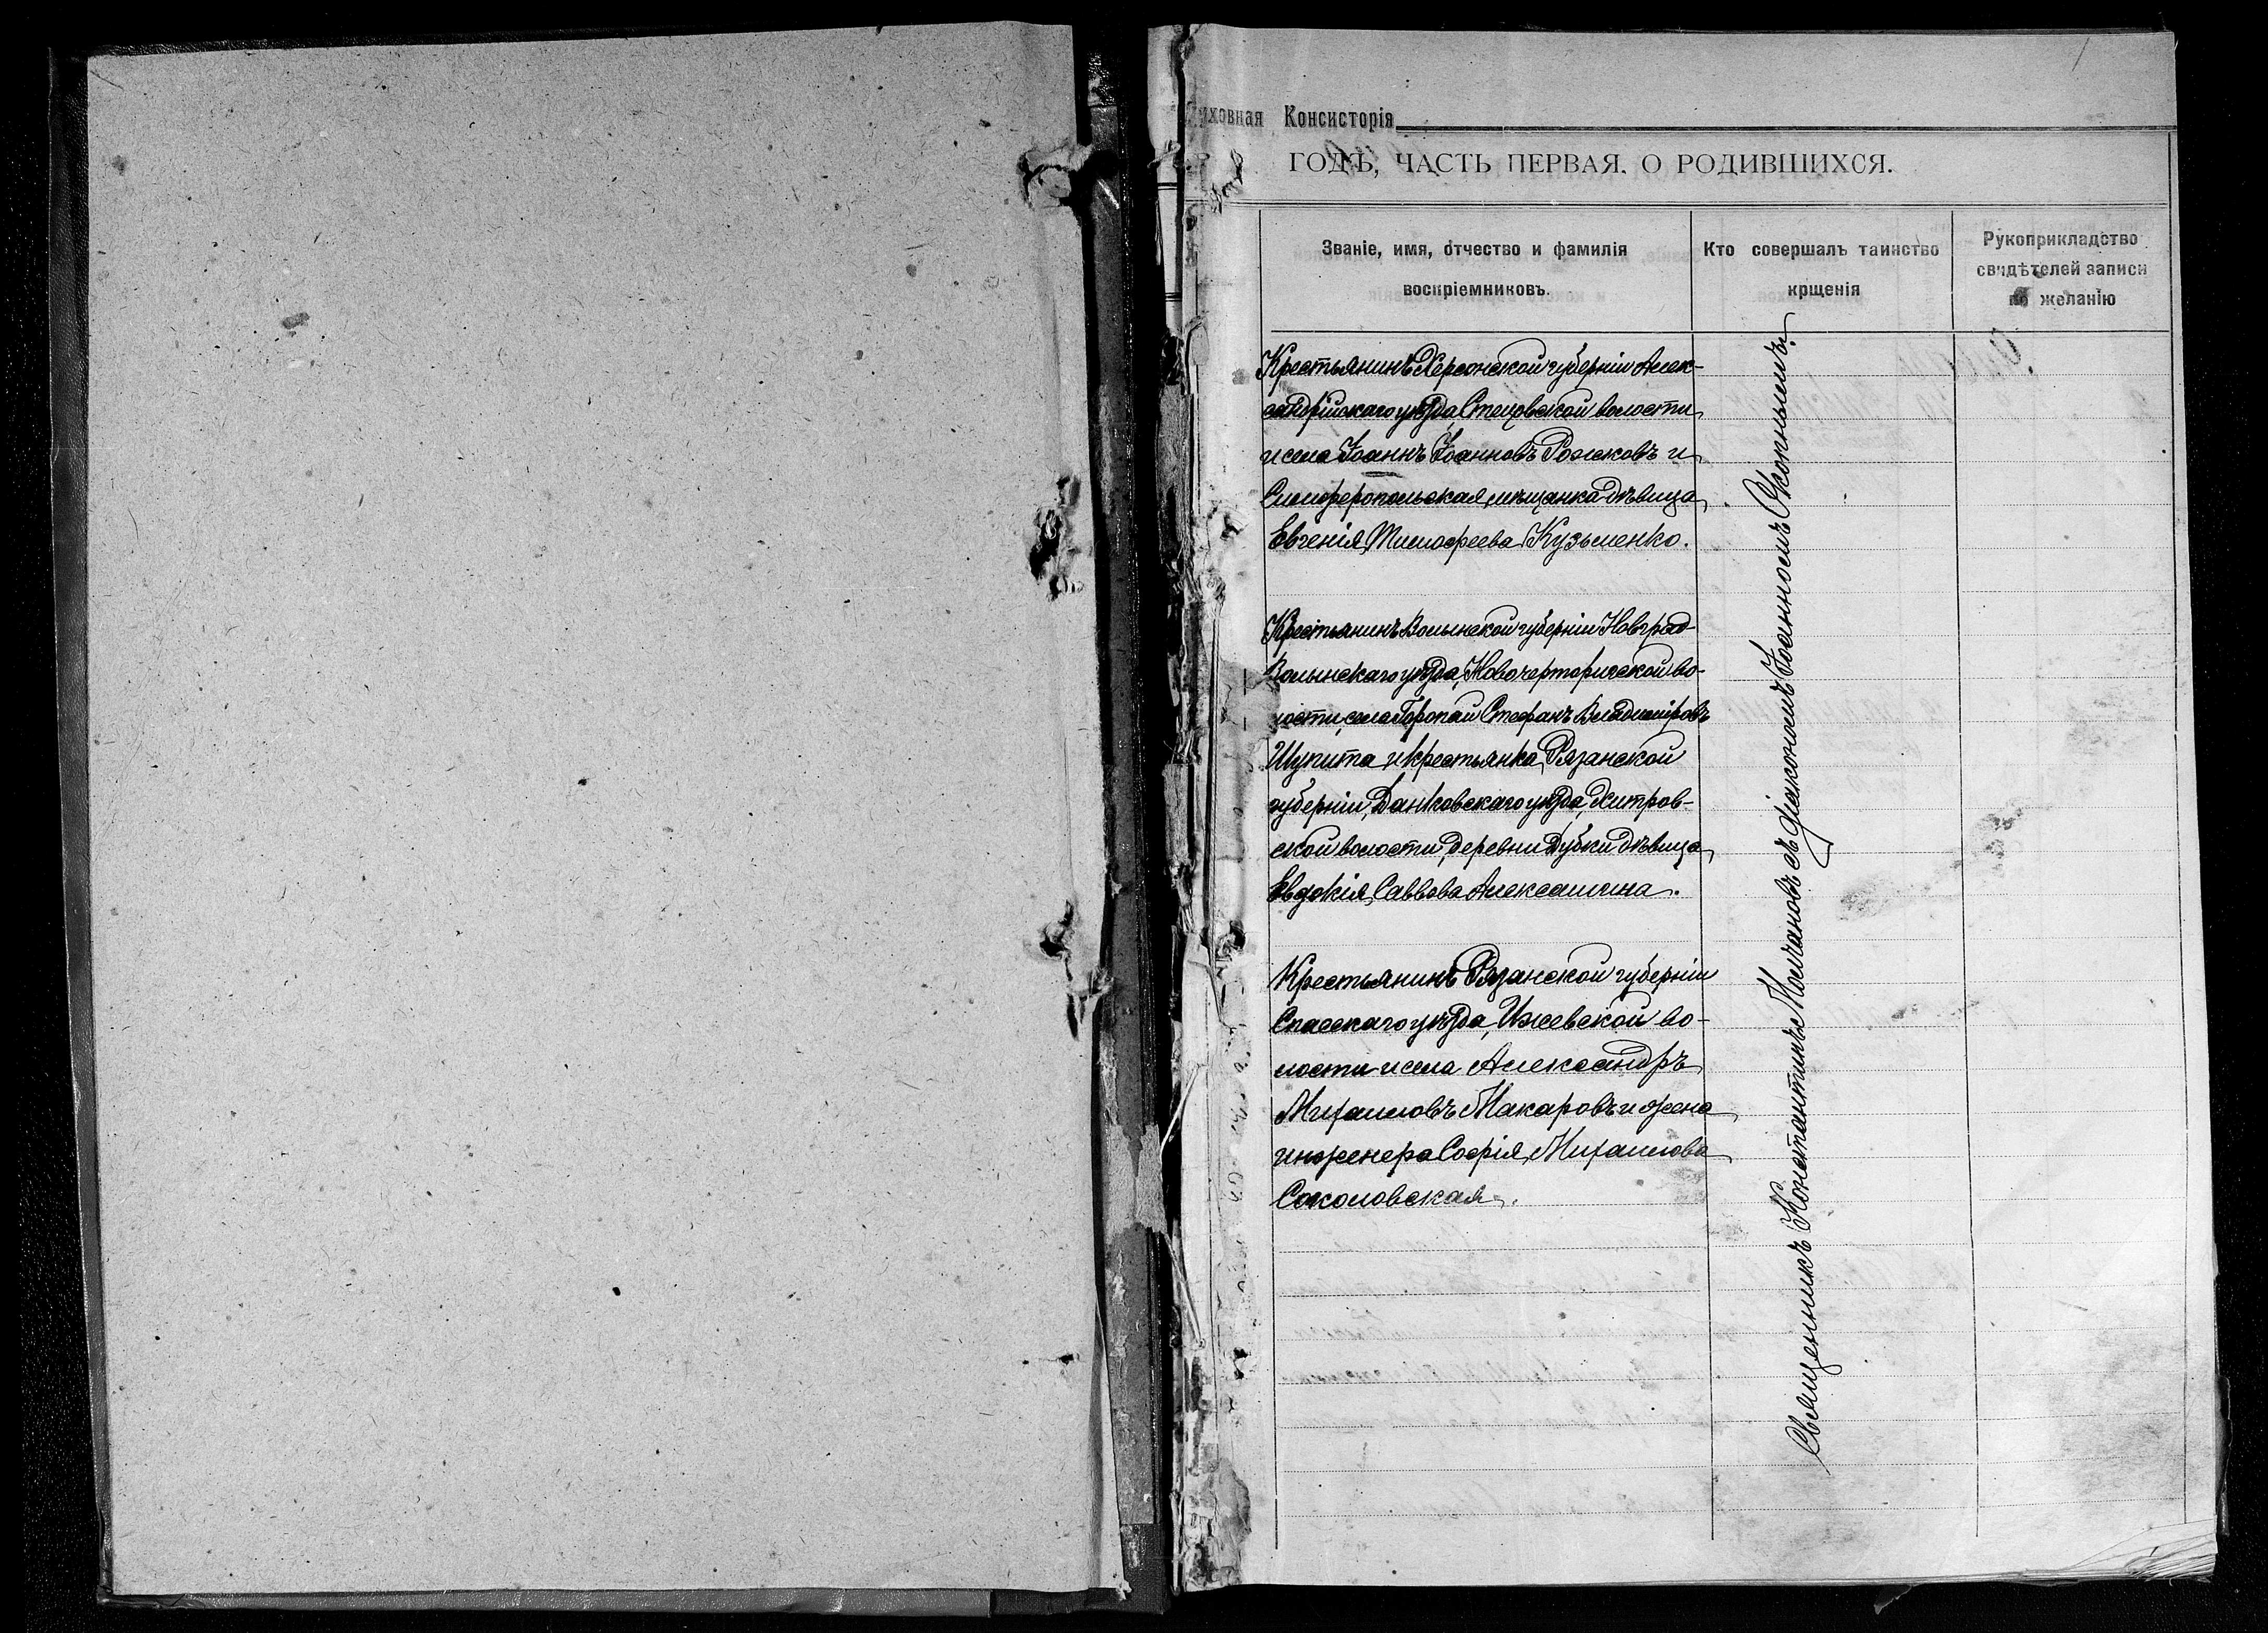 Духовная Консисторія
ГОДЪ, ЧАСТЬ ПЕРВАЯ, О РОДИВШИХСЯ.
Званіе, имя, отчество и фамилія
воспріемниковъ.
Кто совершалъ таинство
крщенія
Рукоприкладство
свидѣтелей записи
по желанію
Крестьянинъ Херсонской губерніи Алек-
сандрійскаго уѣзда Стецовской волости
и села Іоаннъ Іоанновъ Рожковъ и
Симферопольская мѣщанка дѣвица
Евгенія Тимофеева Кузьменко.
Крестьянинъ Волынской губерніи Новград-
Волынскаго уѣзда, Новочерторической во-
лости, села Горопаи Стефанъ Владиміровъ
Шупита и крестьянка Рязанской
губерніи, Данковскаго уѣзда, Хитров-
ской волости, деревни Дубки дѣвица
Евдокія Саввова Алексашина.
Крестьянинъ Рязанской губерніи
Спасскаго уѣзда, Ижевской во-
лости и села Александръ
Михаиловъ Макаровъ и жена
инженера Софія Михаилова
Соколовская.
Священникъ Константинъ Молчановъ съ діакономъ Іоанномъ